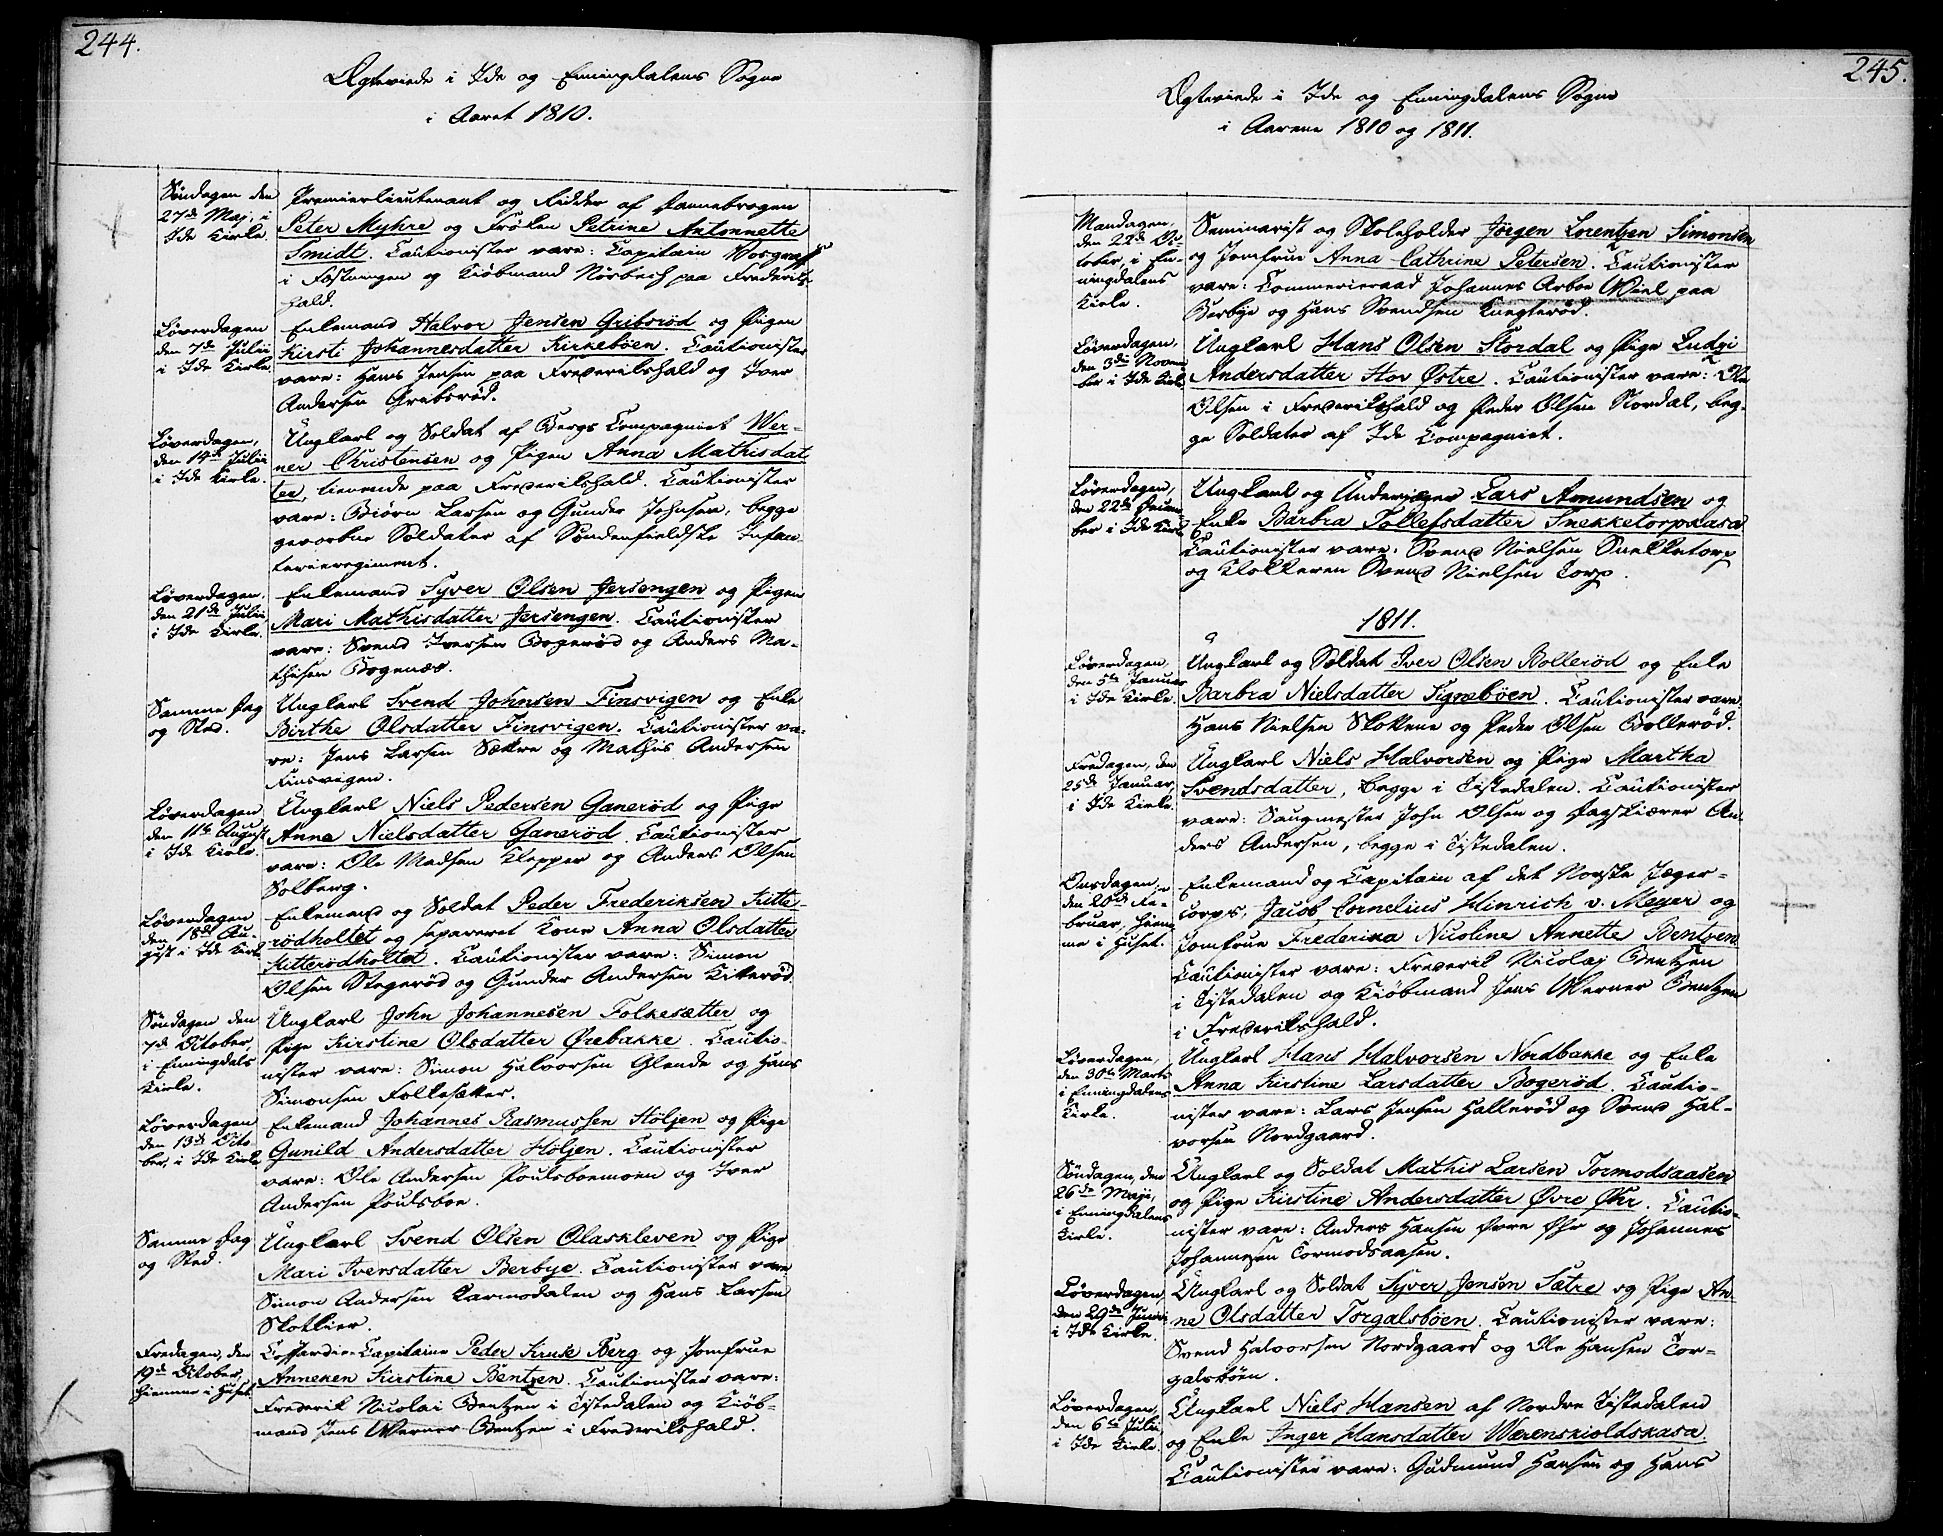 244.
Ægteviede i Ide og Enningdalens Sogne
i Aaret 1810.
Søndagen den
27de Maj, i
Ide Kirke.
Premierlieutenant og Ridder af Dannebrogen
Peter Myhre og Frøken Petrine Antonnette
Smidt. Cautionister vare: Capitain
i Festningen og Kiøbmand Nörbech paa Frederiks-
hald.
Løverdagen
den 7de Julii
i Ide Kirke.
Enkemand Halvor Jensen Gribsröd og Pigen
Kirsti Johannesdatter Kirkebøen. Cautionister
vare: Hans Jensen paa Frederikshald og Iver
Andersen Gribsröd.
Løverdagen,
den 14de Julii
i Ide Kirke.
Ungkarl og Soldat af Bergs Compagniet Wer-
ner Christensen og Pigen Anna Mathisdat-
ter, tienende paa Frederikshald. Cautionister
vare: Biørn Larsen og Gunder Johnsen, begge
gevorbne Soldater af Søndenfieldske Infan-
terieregiment.
Løverdagen,
den 21de Julii
i Ide Kirke.
Enkemand Syver Olsen Jersengen og Pigen
Mari Mathisdatter Jersengen. Cautionister
vare: Svend Iversen Bogerød og Anders Ma-
thisen Bogenæs.
Samme Dag
og Sted.
Ungkarl Svend Johnsen Finsvigen og Enke
Birthe Olsdatter Finsvigen. Cautionister va-
re: Jens Larsen Sækre og Mathis Andersen
Finsvigen.
Løverdagen
den 11te August
i Ide Kirke.
Ungkarl Niels Pedersen Ganerød og Pige
Anna Nielsdatter Ganerød. Cautionister
vare: Ole Madsen Klepper og Anders Olsen
Solberg.
Løverdagen
den 18de Au-
gust i Ide Kirke
Enkemand og Soldat Peder Frederiksen Kitte-
rödholtet og separeret Kone Anna Olsdatter
Kitterödholtet. Cautionister vare: Simon
Olsen Stegerød og Gunder Andersen Kiterød.
Søndagen den
7de October,
i Enningdals
Kirke.
Ungkarl John Johannesen Folkesætter og
Pige Kirstine Olsdatter Ørebakke. Cautio-
nister vare: Simon Halvorsen Glende og Hans
Simonsen Folkesætter.
Løverdagen
den 13de Octo-
ber, i Ide Kirke
Enkemand Johannes Rasmussen Höljen og Pige
Gunild Andersdatter Höljen. Cautionister
vare: Ole Andersen Poulsboemoen og Iver
Andersen Poulsboe.
Samme Dag
og Sted.
Ungkarl Svend Olsen Olaskleven og Pige
Mari Iversdatter Berbye. Cautionister vare
Simon Andersen Tarmodalen og Hans Larsen
Skotlier.
Fredagen, den
19de October,
hiemme i Huset
Cofferdie-Capitaine Peder Kruse Berg og Jomfrue
Anneken Kirstine Bentzen. Cautionister vare:
Frederik Nicolai Bentzen i Tistedalen og Kiöb-
mand Jens Werner Bentzen i Frederikshald.
245.
Ægteviede i Ide og Enningdalens Sogne
i Aarene 1810 og 1811.
Mandagen,
den 22de Oc-
tober, i En-
ningdalens
Kirke.
Seminarist og Skoleholder Jörgen Lorentzen Simonsen
og Jomfrue Anna Cathrine Petersen. Cautionister
vare: Commerieraad Johannes Arboe Wiel paa
Berbye og Hans Svendsen
Løverdagen,
den 3die Novem-
ber i Ide Kirke
Ungkarl Hans Olsen Stordal og Pige Ludvi
Andersdatter Hov Østre. Cautionister vare: Ole
Olsen i Frederikshald og Peder Olsen Stordal, beg-
ge Soldater af Ide Compagniet.
Løverdagen,
den 22de Decem-
ber i Ide Kirke
Ungkarl og Underjæger Lars Amundsen og
Enke Barbra Tollefsdatter Snekketorpskasa
Cautionister vare: Svend Nielsen Snekketorp
og Klokkeren Svend Nielsen Torp.
1811.
Løverdagen,
den 5te Januar
i Ide Kirke.
Ungkarl og Soldat Iver Olsen Bollerød og Enke
Barbra Nielsdatter Signebøen. Cautionister vare
Hans Nielsen Skottene og Peder Olsen Bollerød.
Fredagen, den
25de Januar,
i Ide Kirke.
Ungkarl Niels Halvorsen og Pige Martha
Svendsdatter, begge i Tistedalen. Cautionister
vare: Saugmester John Olsen og Dagskiærer An-
ders Andersen, begge i Tistedalen.
Onsdagen,
den 20de Fe-
bruar, hiem-
me i Huset.
Enkemand og Capitain af det Norske Jæger-
corps, Jacob Cornelius Hinrich v. Meyer og
Jomfrue Frederika Nicoline Annette Bentzen
Cautionister vare: Frederik Nicolaj Bentzen
i Tistedalen og Kiöbmand Jens Werner Bentzen
i Frederikshald.
Løverdagen,
den 30te Marts
i Enningdalens
Kirke.
Ungkarl Hans Halvorsen Nordbakke og Enke
Anna Kirstine Larsdatter Bogerød. Cautio-
nister vare: Lars Jensen Hallerød og Svend Hal-
vorsen Nordgaard.
Søndagen, den
26de Maji,
i Enningdalens
Kirke.
Ungkarl og Soldat Mathis Larsen Tormodsaasen
og Pige Kirstine Andersdatter Øvre Øhr. Cautio-
nister vare: Anders Hansen Øvre Øhr og Johannes
Johannesen Tormodsaasen.
Løverdagen,
den 29de Junii
i Ide Kirke.
Ungkarl og Soldat Syver Jensen Sætre og Pige An-
ne Olsdatter Torgalsbøen. Cautionister vare:
Svend Halvorsen Nordgaard og Ole Hansen Tor-
galsbøen.
Løverdagen,
den 6te Julii
i Ide Kirke.
Ungkarl Niels Hansen af Nordre Tistedalen
og Enke Inger Hansdatter Wærenskioldskasa.
Cautionister vare: Gudmund Hansen og Hans